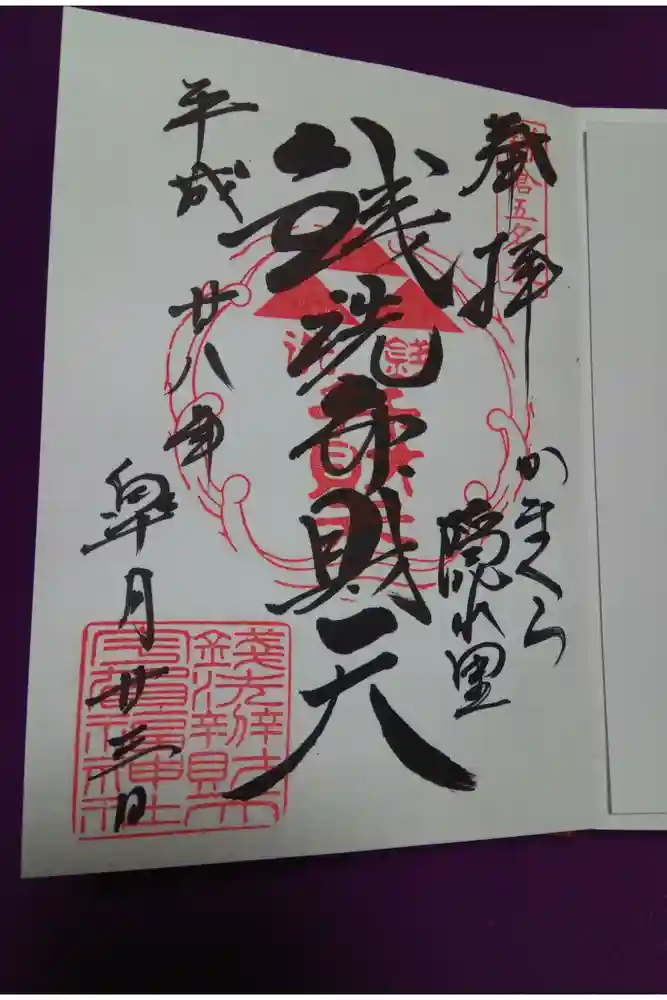 奉拝
かまくら
隠れ里
銭洗弁財天
平成廿八年
皐月廿三日
鎌倉五名水
銭洗
弁財天
銭洗弁財天
宇賀福神社